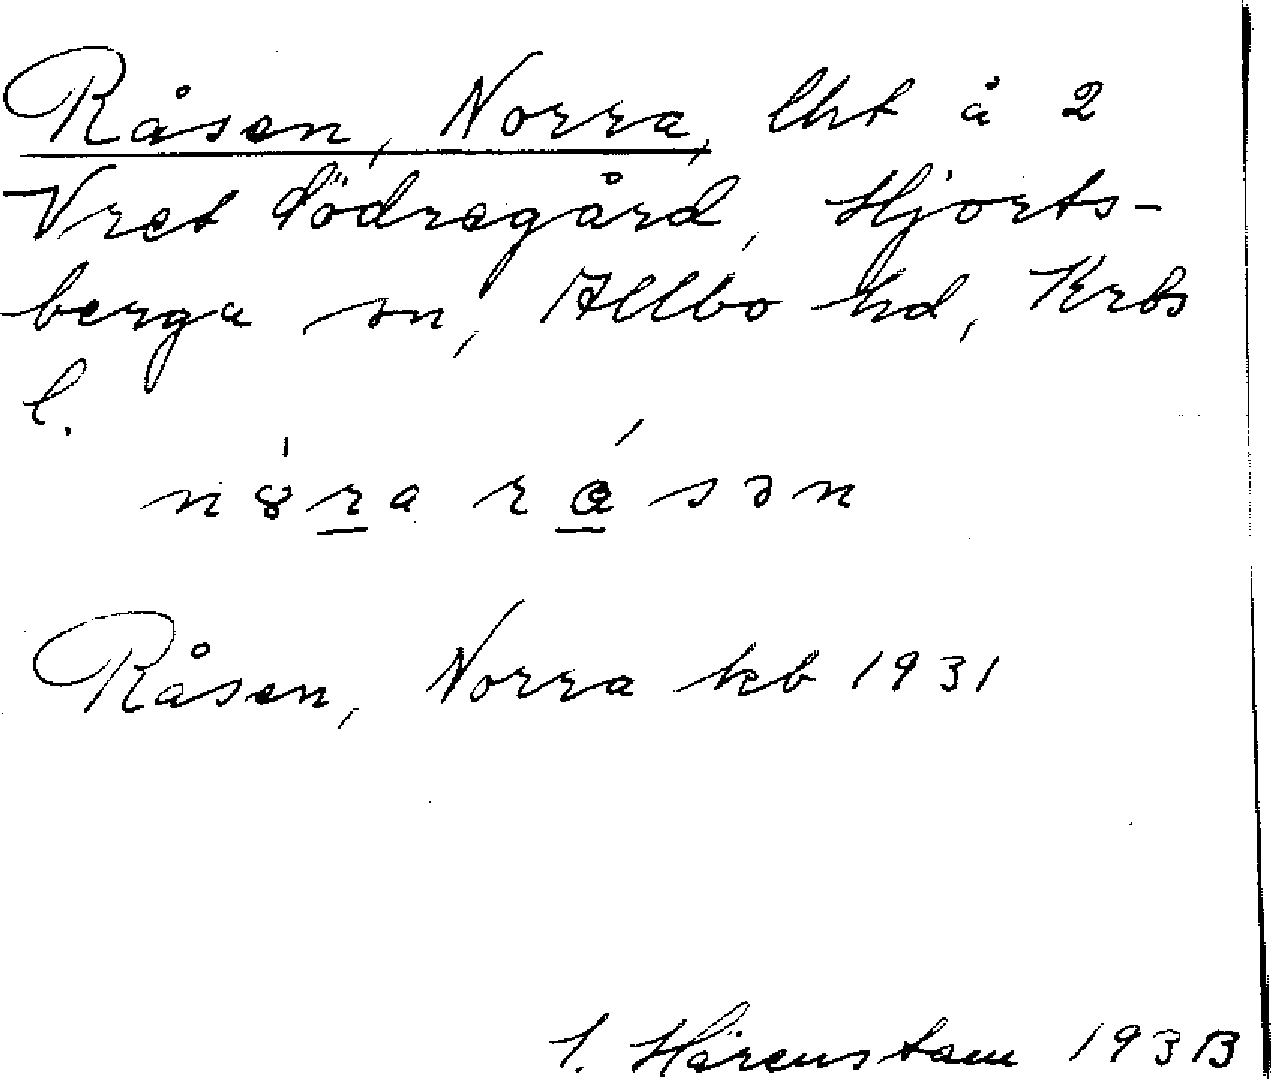 Råsen, Norra, lht å 2
Vret Södregård, Hjorts-
berga sn, Allbo hd, Krbs
l.
n8ra råsən
Råsen, Norra kb 1931
Härenstam 193